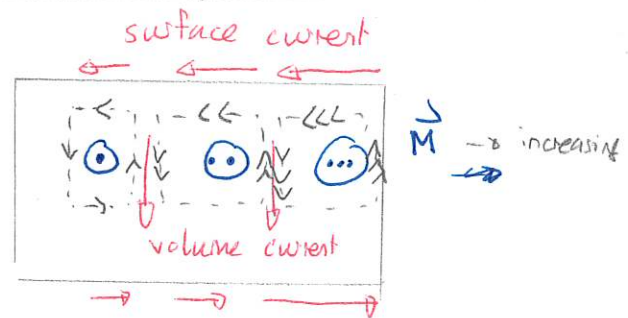 surface current
M → increasing
volume current